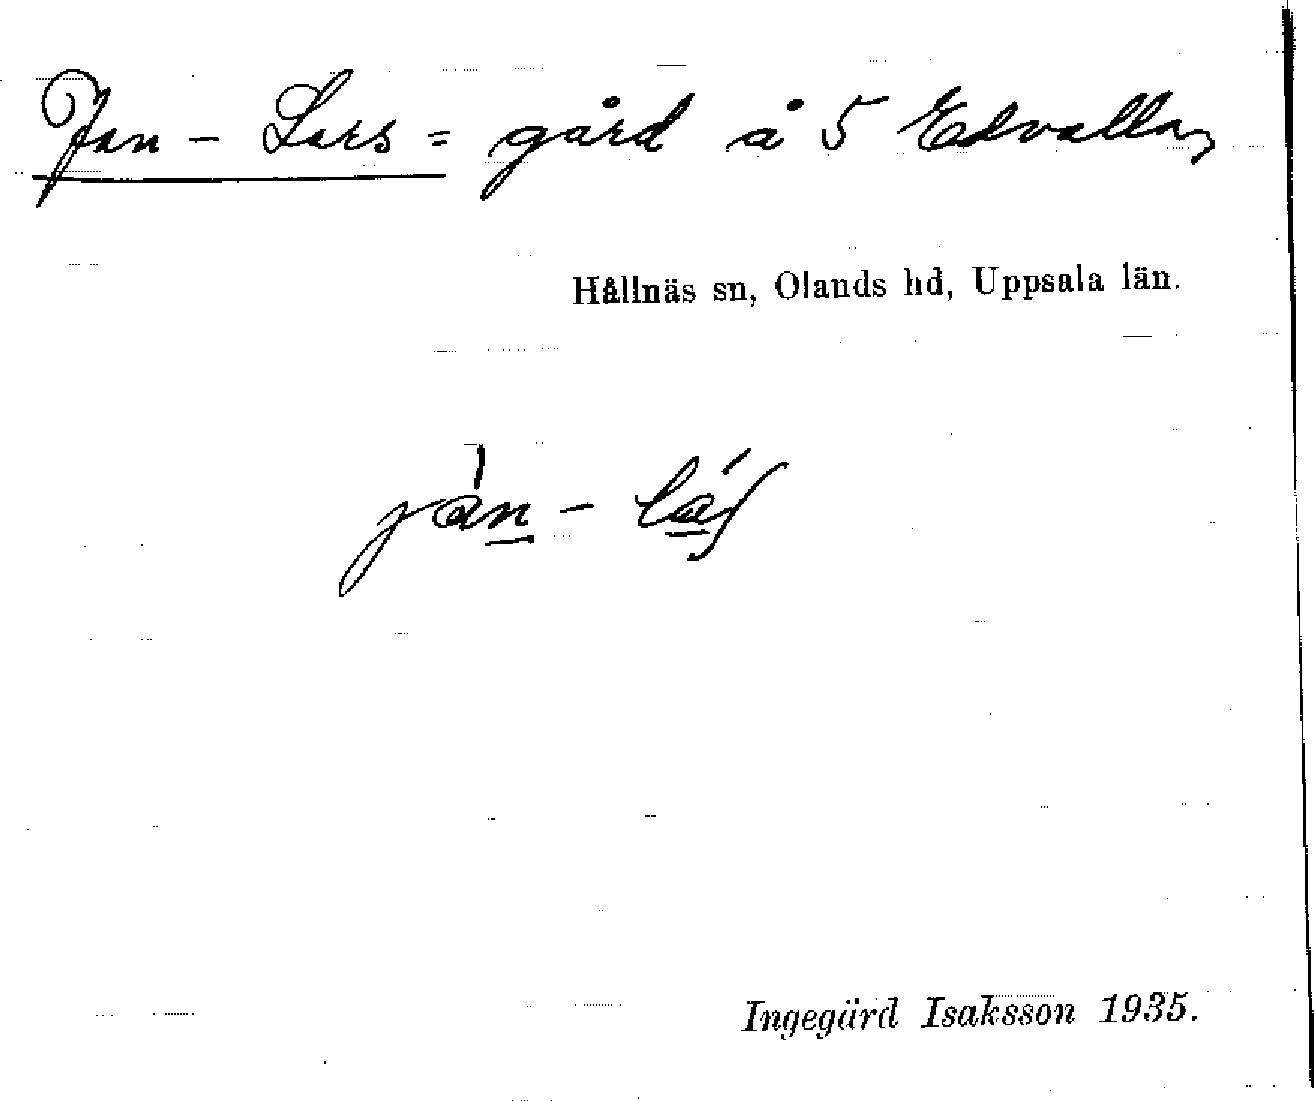 Jan - Lars = gård å 5 Edvalla,
Hållnäs sn, Olands hd, Uppsala län.
jàn - láʃ
Ingegärd Isaksson 1935.